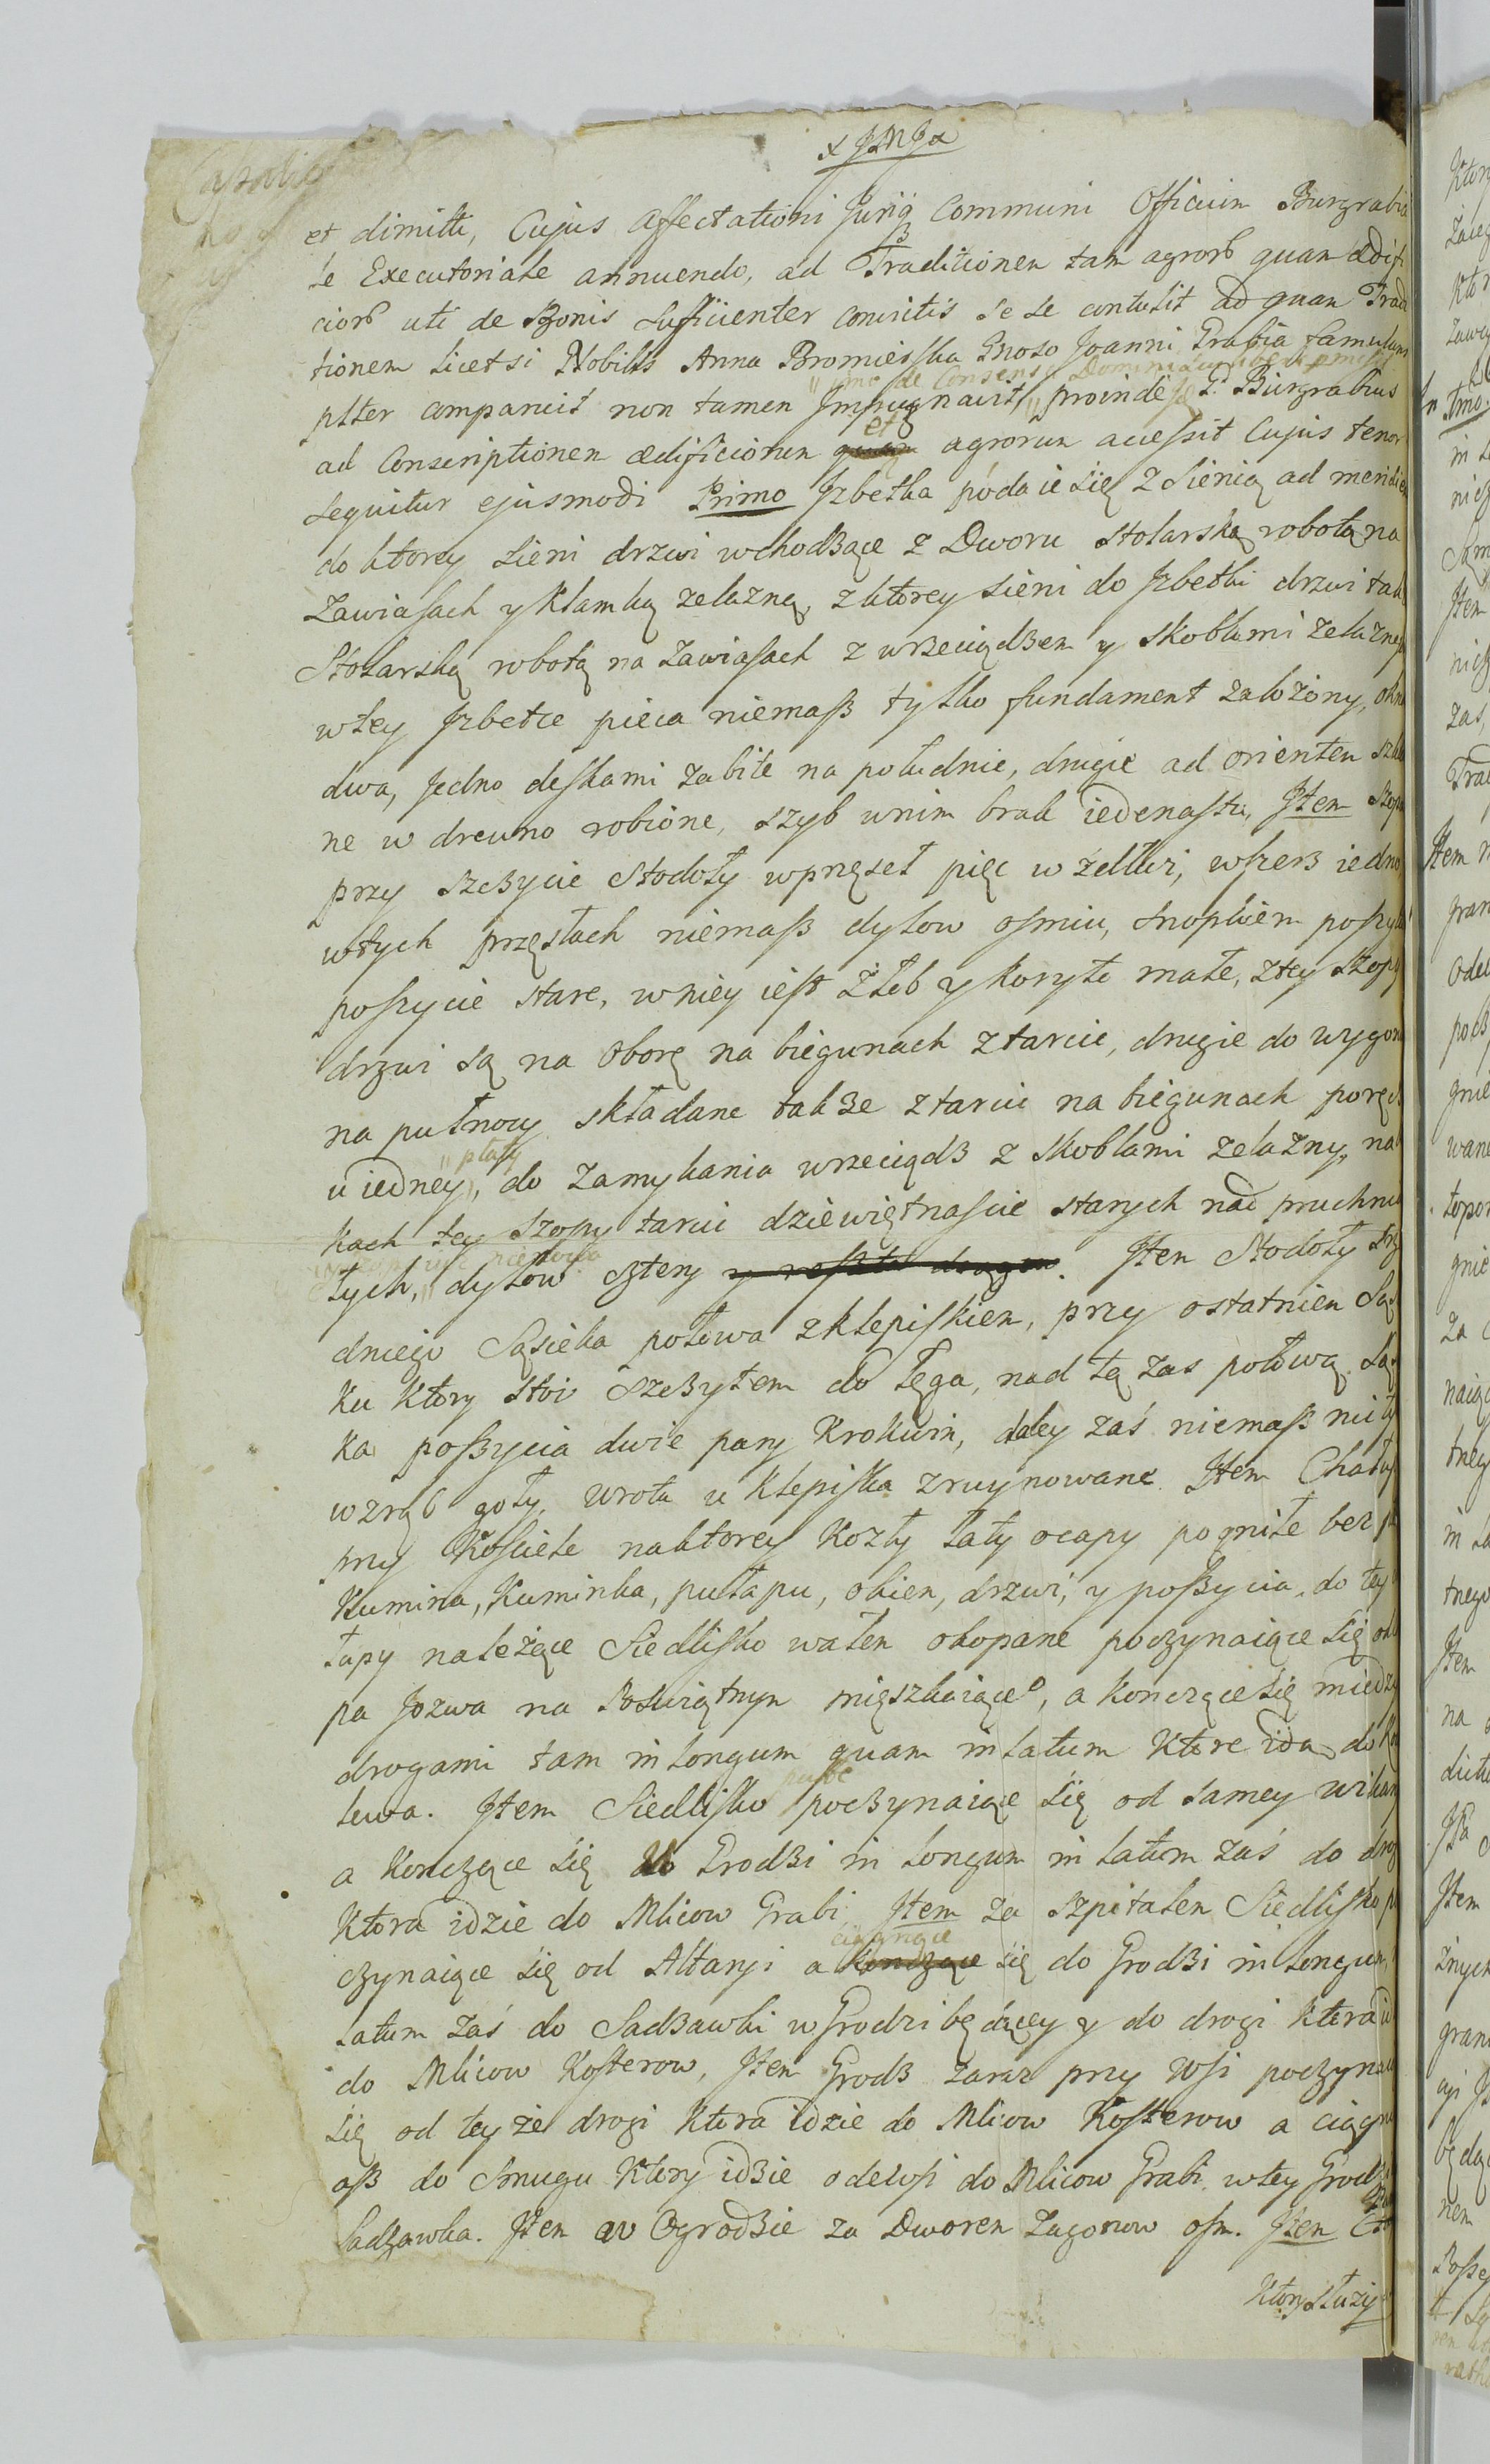 x JMJ x
et dimitti, Cujus affectationi Jurig Communi Officium Burgrabia
le Executoriale annuendo, ad Traditionem tam agrorb quam ædifi
ciorb uti de Bonis sufficienter conscitis se se contulit ad quam Trad
tionem licet si Nobilis Anna Bromierska Gnoso Joanni Grabia famulans
de Consensu Domini
pltter comparuit non tamen Impugnavit, proinde G. Burgrabius
et
ad Conscriptionem ædificiorum quam agrorum accessit Cujus tenor
sequitur ejusmodi Primo Jzbetka podaie się z Sienią ad meridiem
do ktorey sieni drzwi wchodzące z Dworu stolarską robotą na
Zawiasach y Klamką zelazną, z ktorey sieni do Jzbetki drzwi tak
Stolarską robotą na Zawiasach z wrzeciądzem y skoblami zelaznym
wtey Jzbetce pieca niemasz tylko fundament założony, okna
dwa, Jedno deskami zabite na południe, drugie ad orientem szkla
ne w drewno robione, szyb wnim brak iedenastu, Jtem Szopa
przy szczycie Stodoły wprzęseł pięc w żelbi, wszerz iedno
wtych przęsłach niemasz dylow osmiu, snopkiem poszyta
poszycie stare, wniey iest Żłob y koryto małe, ztey Szopy
drzwi są na Oborę na biegunach z tarcic, drugie do wygonu
na pułnocy składane także z tarcic na biegunach poręcz
płasy
u iedney, do zamykania wrzeciądz z skoblami zelazny, na
kach tey Szopy tarcic dziewiętnascie starych nad pruchnia
tych, dylow cztery y reszta drągow. Jtem Stodoły srz
dniego Sąsieka połowa z klepiskiem, przy ostatniem Sąs
ku Ktory stoi szczytem do Łęga, nad tą zas połową Sąs
ka poszycia dwie pary Krokwin, daley zaś niemasz nic ty
wzrąb goły, wrota u klepiska zruynowane. Jtem Chałup
przy Kościele naktorey Kozły łaty ocapy pogniłe bez p
Kumina, Kuminka, pułapu, okien, drzwi, y poszycia, do tey
łupy należące Siedlisko wałem okopane poczynaiące się od
pa Jozwa na Poswiętnym mięszkaiące°, a konczące się miedzy
drogami tam in longum quam in latum ktore idą do K
lewa. Jtem Siedlisko puste poczynaiące się od samey wikar
a konczące się do Grodzi in longum in latum zaś do drog
ktora idzie do Mlicow Grabi, Jtem za szpitalem Siedlisko p
ciągnące
czynaiące się od Altaryi a konczące się do Grodzi in longum,
latum zaś do Sadzawki w Grodzi będącey y do drogi ktora i
do Mlicow Kosterow, Jtem Grodz zaraz przy Wsi poczyna
się od teyże drogi ktora idzie do Mlicow Kosterow a ciągn
asz do Smugu Ktory idzie odewsi do Mlicow Grabi, wtey Grodz
Sadzawka. Jtem w Ogrodzie za Dworem Zagonow osm. Jtem
Ktory służy